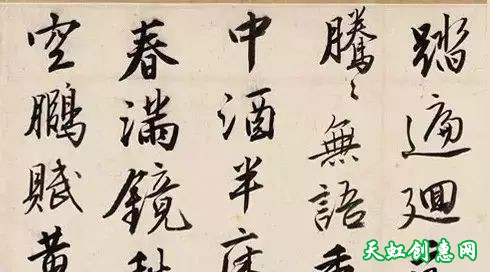 踏遍廻
騰〻無語
中酒半床
春滿鏡
空鵬賦黄
天虹创意网